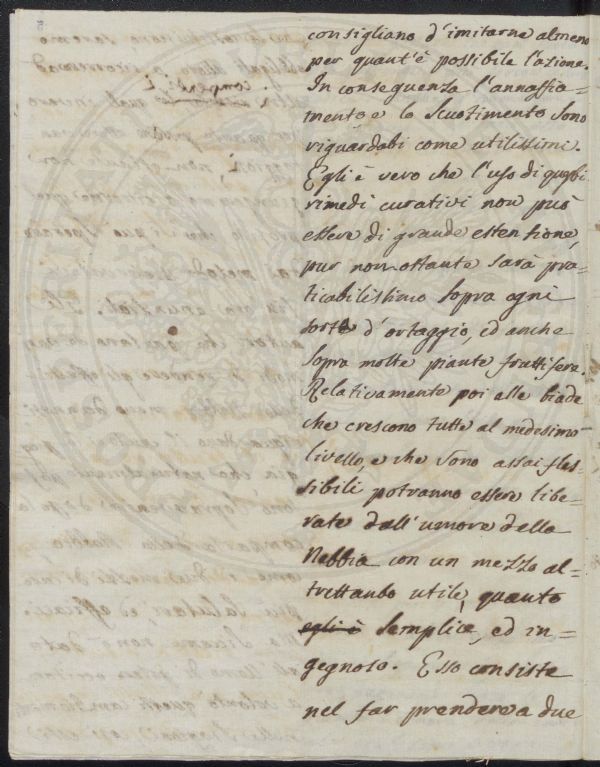 consigliano d'imitarne almeno
per quant'è possibile l'azione.
In conseguenza l'annaffia=
mento e lo Scuotimento sono
riguardabi come utilissimi.
Egli è vero che l'uso di questi
rimedi curativi non può
essere di grande estensione,
pur non ostante sarà pra=
ticabilissimo sopra ogni
sorte d'ortaggio, ed anche
sopra molte piante fruttifere.
Relativamente poi alle biade
che crescono tutte al medesimo
livello, e che sono assai fles=
sibili potranno essere libe=
rate dall'umore della
Nebbia con un mezzo al=
trettanto utile, quanto
egli è semplice, ed in=
gegnoso. Esso consiste
nel far prendere a due